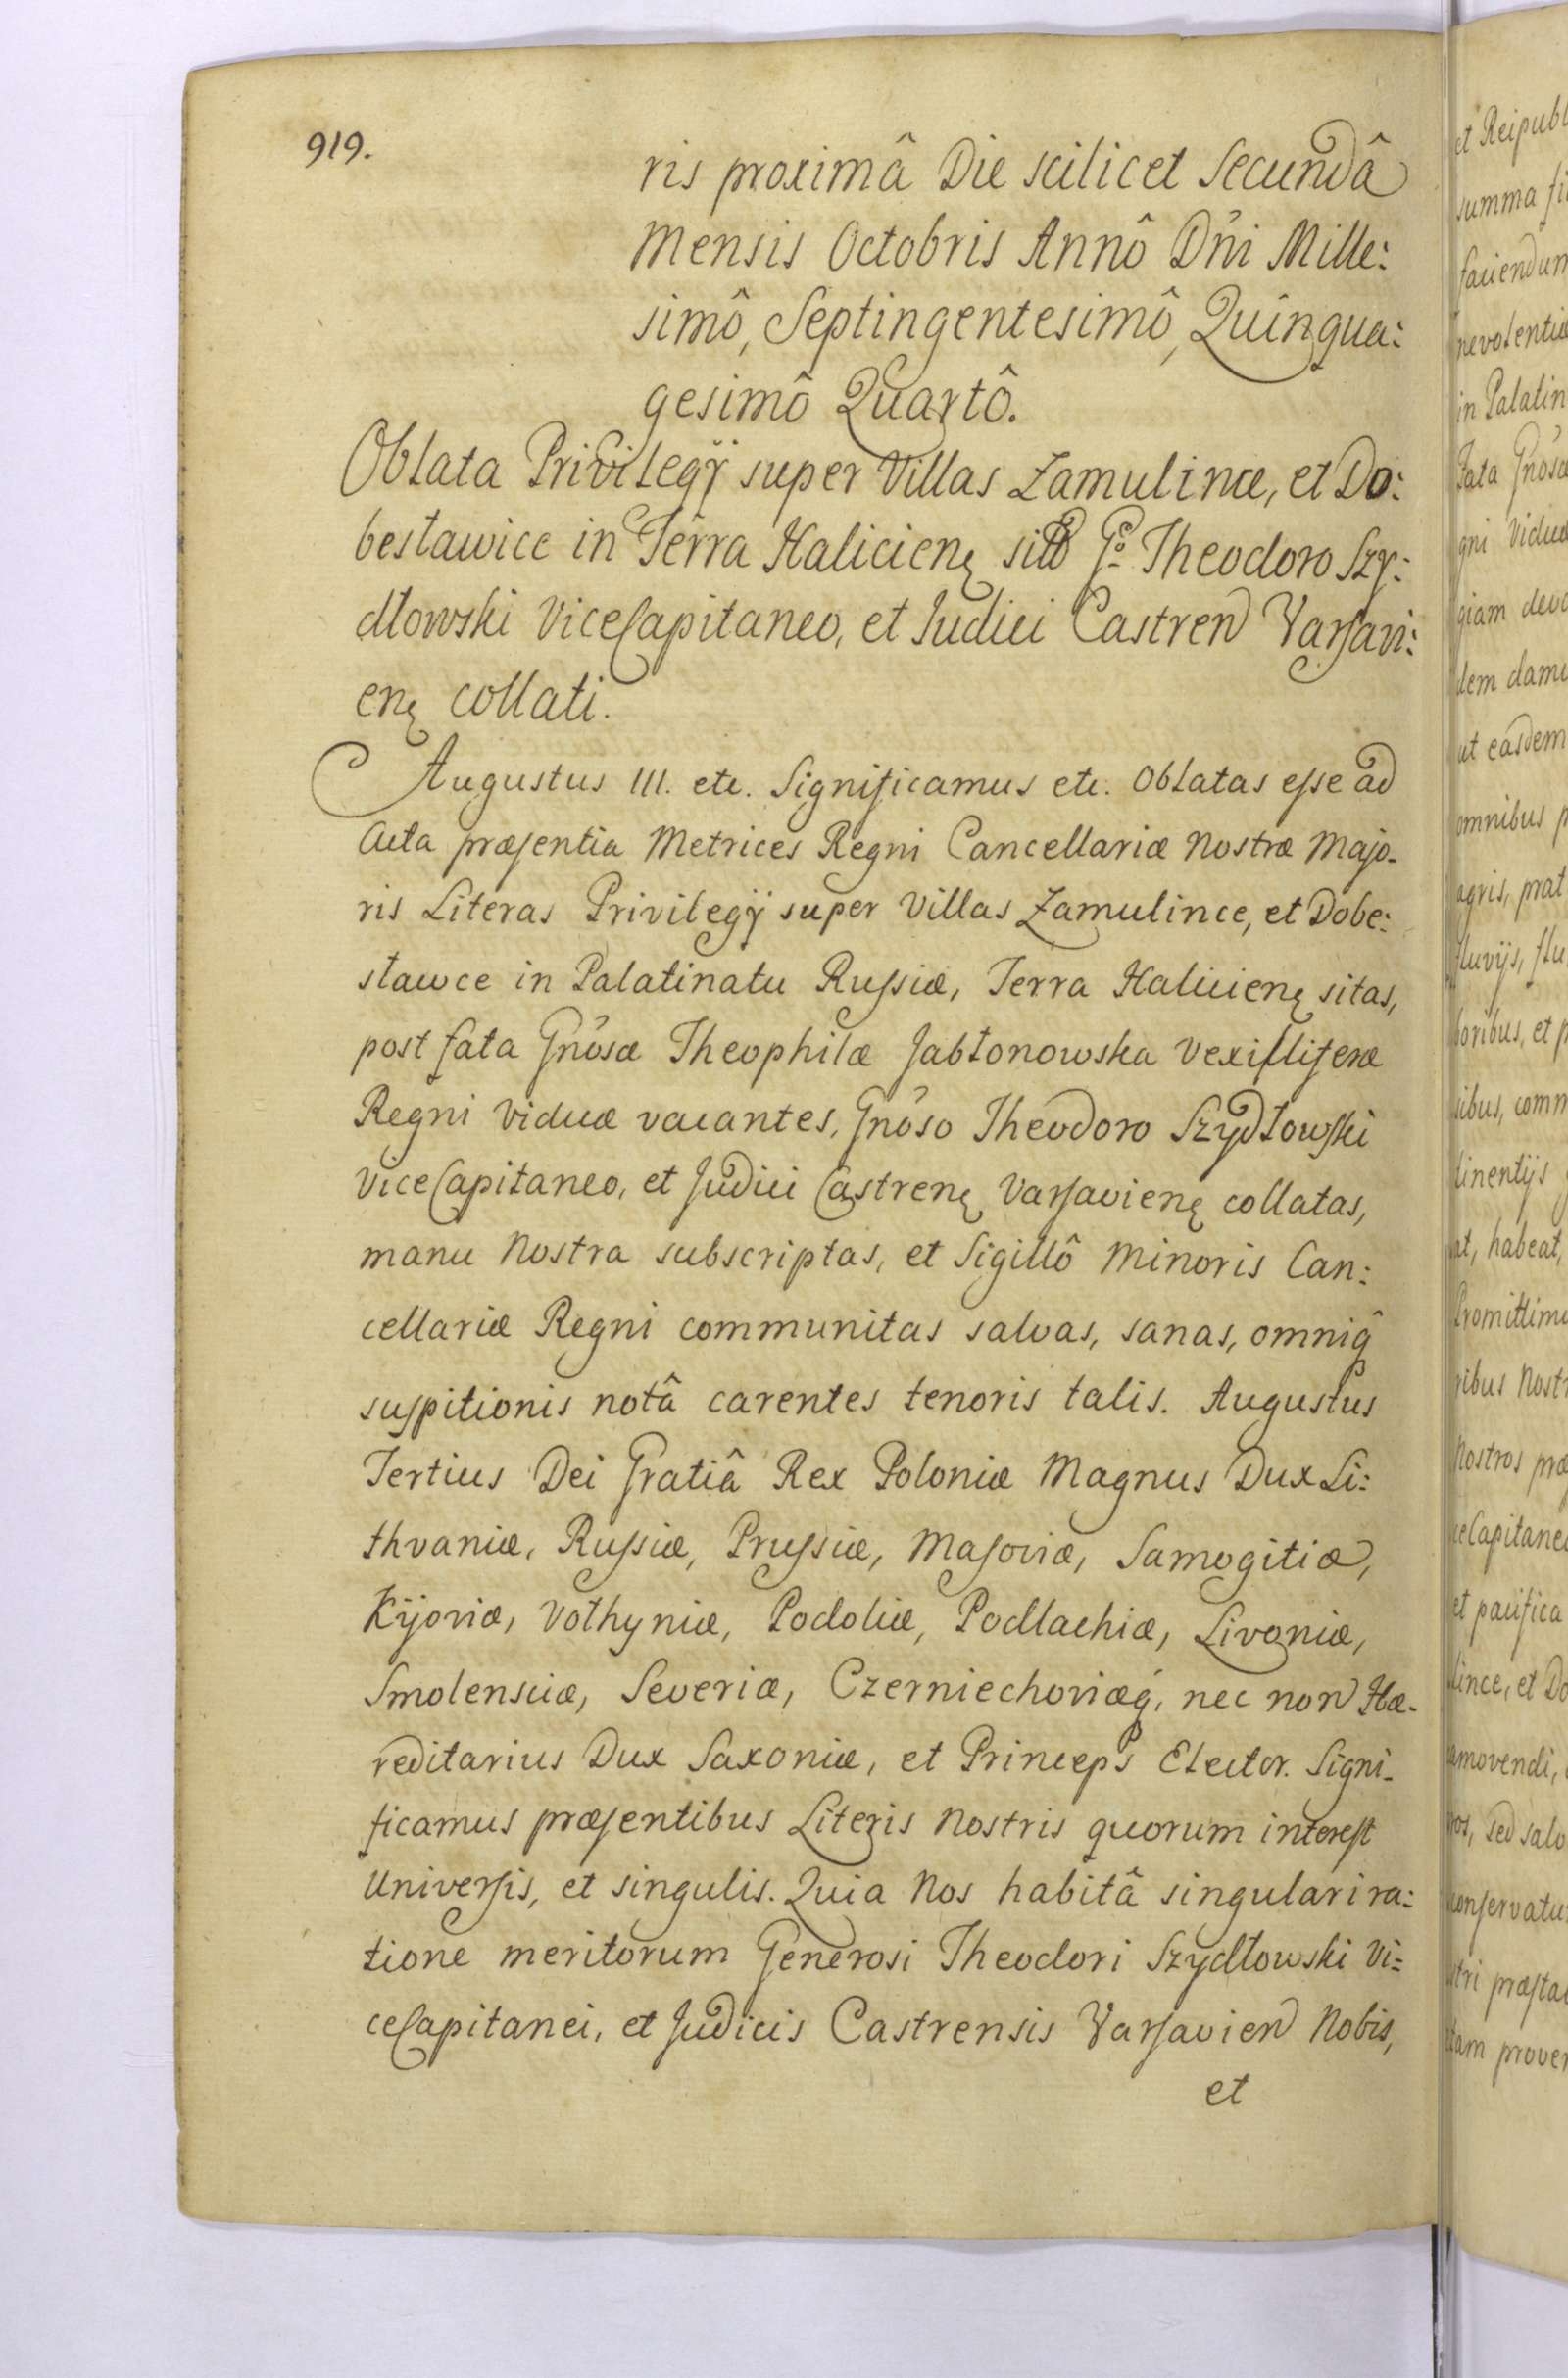 919.
ris proximâ Die scilicet Secundâ
Mensis Octobris Annô Dñi Mille:
simô, Septingentesimô, Quinqua:
gesimô Quartô.
Oblata Privilegÿ super Villas Zamulince, et Do:
besławice in Terra Halicienę G° Theodoro Szy:
dłowski ViceCapitaneo, et Judici Castren Varsavi:
enę collati.
Augustus III. etc. Significamus etc. Oblatas esse ad
Acta præsentia Metrices Regni Cancellariæ Nostræ Majo-
ris Literas Privilegÿ super Villas Zamulince, et Dobe:
sławce in Palatinatu Russiæ, Terra Halicienę sitas,
post fata Gñosæ Theophilæ Jabłonowska Vexilliferæ
Regni Viduæ vacantes, Gñoso Theodoro Szydłowski
ViceCapitaneo, et Judici Castrenę Varsavienę collatas,
manu Nostra subscriptas, et Sigillô Minoris Can:
cellariæ Regni communitas salvas, sanas, omniq̃
suspitionis notâ carentes tenoris talis. Augustus
Tertius Dei Gratiâ Rex Poloniæ Magnus Dux Li:
thvaniæ, Russiæ, Prussiæ, Masoviæ, Samogitiæ,
Kijoviæ, Volhyniæ, Podoliæ, Podlachiæ, Livoniæ,
Smolensciæ, Severiæ, Czerniechoviæq́, nec non Hæ-
reditarius Dux Saxoniæ, et Princeps Elector. Signi-
ficamus præsentibus Literis Nostris quorum interest
Universis, et singulis. Quia Nos habitâ singulari ra:
tione meritorum Generosi Theodori Szydłowski Vi=
ceCapitanei, et Judicis Castrensis Varsavien Nobis,
et
et Reipubl
summa
faciendum
nevolentiæ
in Palatin
Fata Gñosæ
gni Viduæ
giam
dem
ut easdem
omnibus p
agris, prat
fluvijs, flu
boribus, et
sibus, comm
tinentijs
at, habeat,
Promittim
ribus Nostr
Nostros præ
ceCapitane
et pacifica
lince, et Do
amovendi,
sed salv
conservatu
stri præsta
tam prove